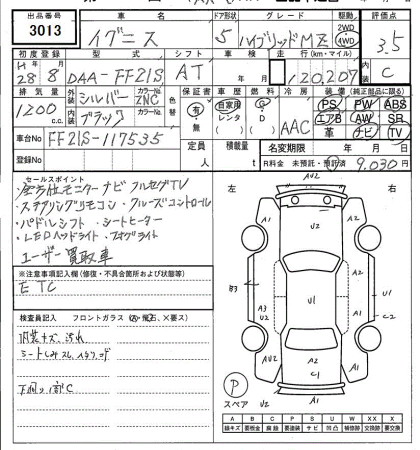 出品番号 車名 ドア形状 グレード 駆動 評価点
3013 イグニス 5 ハイブリッドMZ 2WD 4WD 3.5
初度登録 型式 シフト 車検 走行(km・マイル) 内装
H 28年8月 DAA-FF21S AT 年 月 120,207 C
排気量 外装 シルバー カラーNo. ZNC 色替 保証書 車歴 燃料 冷房 装備(純正部品に限る)
1200 c.c. 内装 ブラック カラーNo. 有・無 自家用 レンタ ( ) G D ( ) AAC PS PW ABS
エアB AW SR
革 ナビ TV
車台No FF21S-117535 定員 人 積載量 t 名変期限 年 月
登録No R料金 未預託・預託済 9,030円
セールスポイント
全方位モニターナビ フルセグTV
・ステアリングリモコン・クルーズコントロール
・パドルシフト・シートヒーター
・LEDヘッドライト・フォグライト
ユーザー買取車
※注意事項記入欄(修復・不具合箇所および状態等)
ETC
検査員記入 フロントガラス (A・飛石、×要ス)
内装キズ、汚れ
下回り傷C
左 右
AU2
A1
A2
U2
B3
A3
U2
U1
A2
U1
C2
A2
C1
AU2
A1
A1
P
スペア
A B C P S U W X XX
線キズ 要板金 腐蝕 要塗装 サビ 凹凸 補修跡 要交換 交換跡